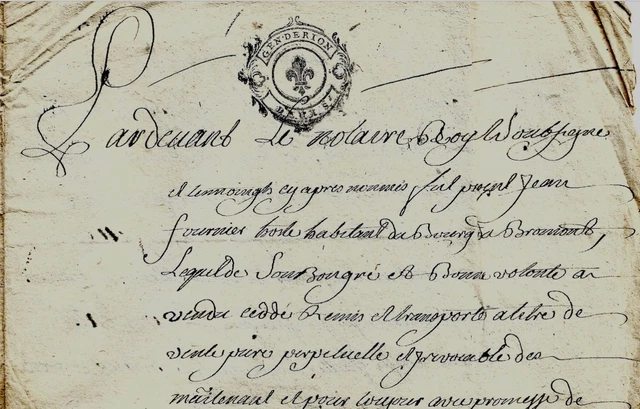 GEN·DERION
DEUX S.
Pardevant Le Notaire Royl Soubsigne
et temoingts cy apres nommes fut pnt Jean
fournier hoste habitant du Bourg de Bramont,
Lequel de Son Bon gré et Bonne volonte a
vendu ceddé Remis et transporté a titre de
vente pure perpetuelle et Irrevocable des
maintenant et pour toujours avec promesse de